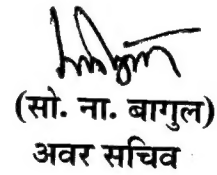 (सो. ना. बागुल)
अवर सचिव